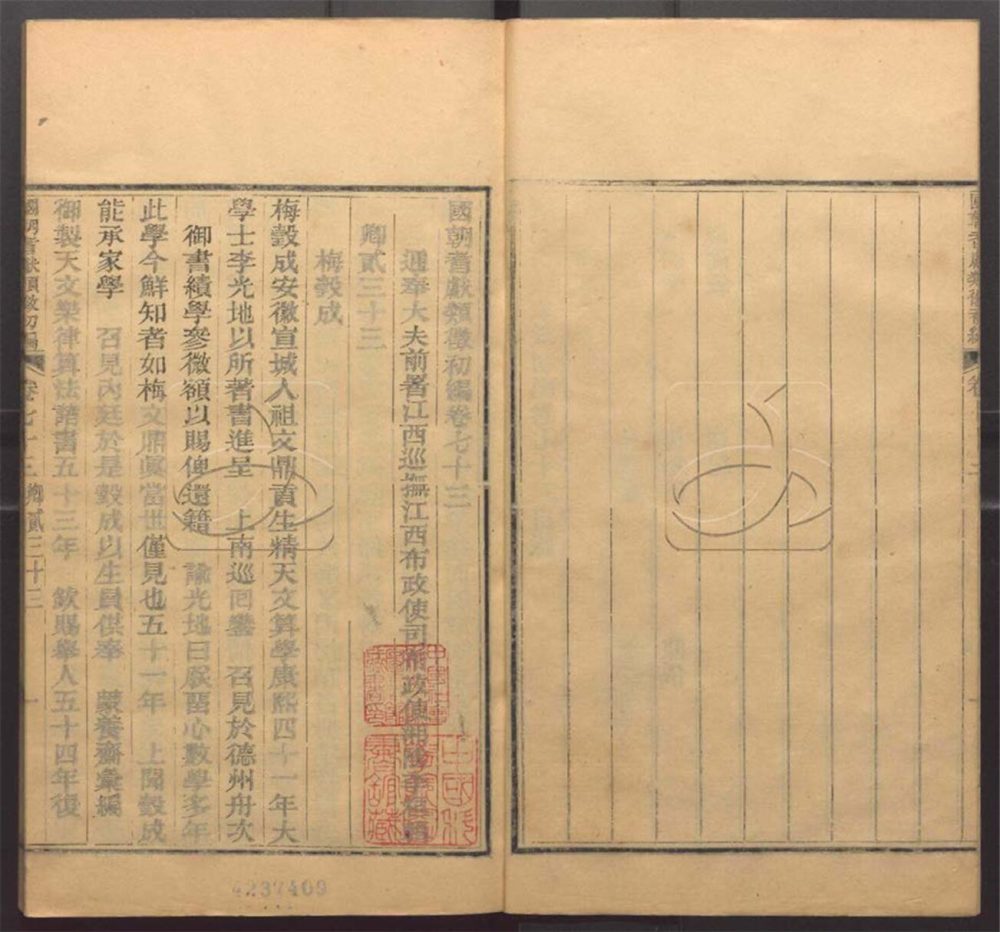 國朝耆獻類徵初編卷七十三
通奉大夫前署江西巡撫江西布政使司布政使湘陰李桓輯
卿貳三十三
梅瑴成
梅瑴成安徽宣城人祖文鼎貢生精天文算學康熙四十一年大
學士李光地以所著書進呈 上南巡回鑾 召見於德州舟次
御書績學參微額以賜俾還籍 諭光地曰朕留心數學多年
此學今鮮知者如梅文鼎實當世僅見也五十一年 上聞瑴成
能承家學 召見內廷於是瑴成以生員供奉 蒙養齋彙編
御製天文樂律算法諸書五十三年 欽賜舉人五十四年復
國朝耆獻類徵初編 卷七十三 卿貳三十三 一
4237409